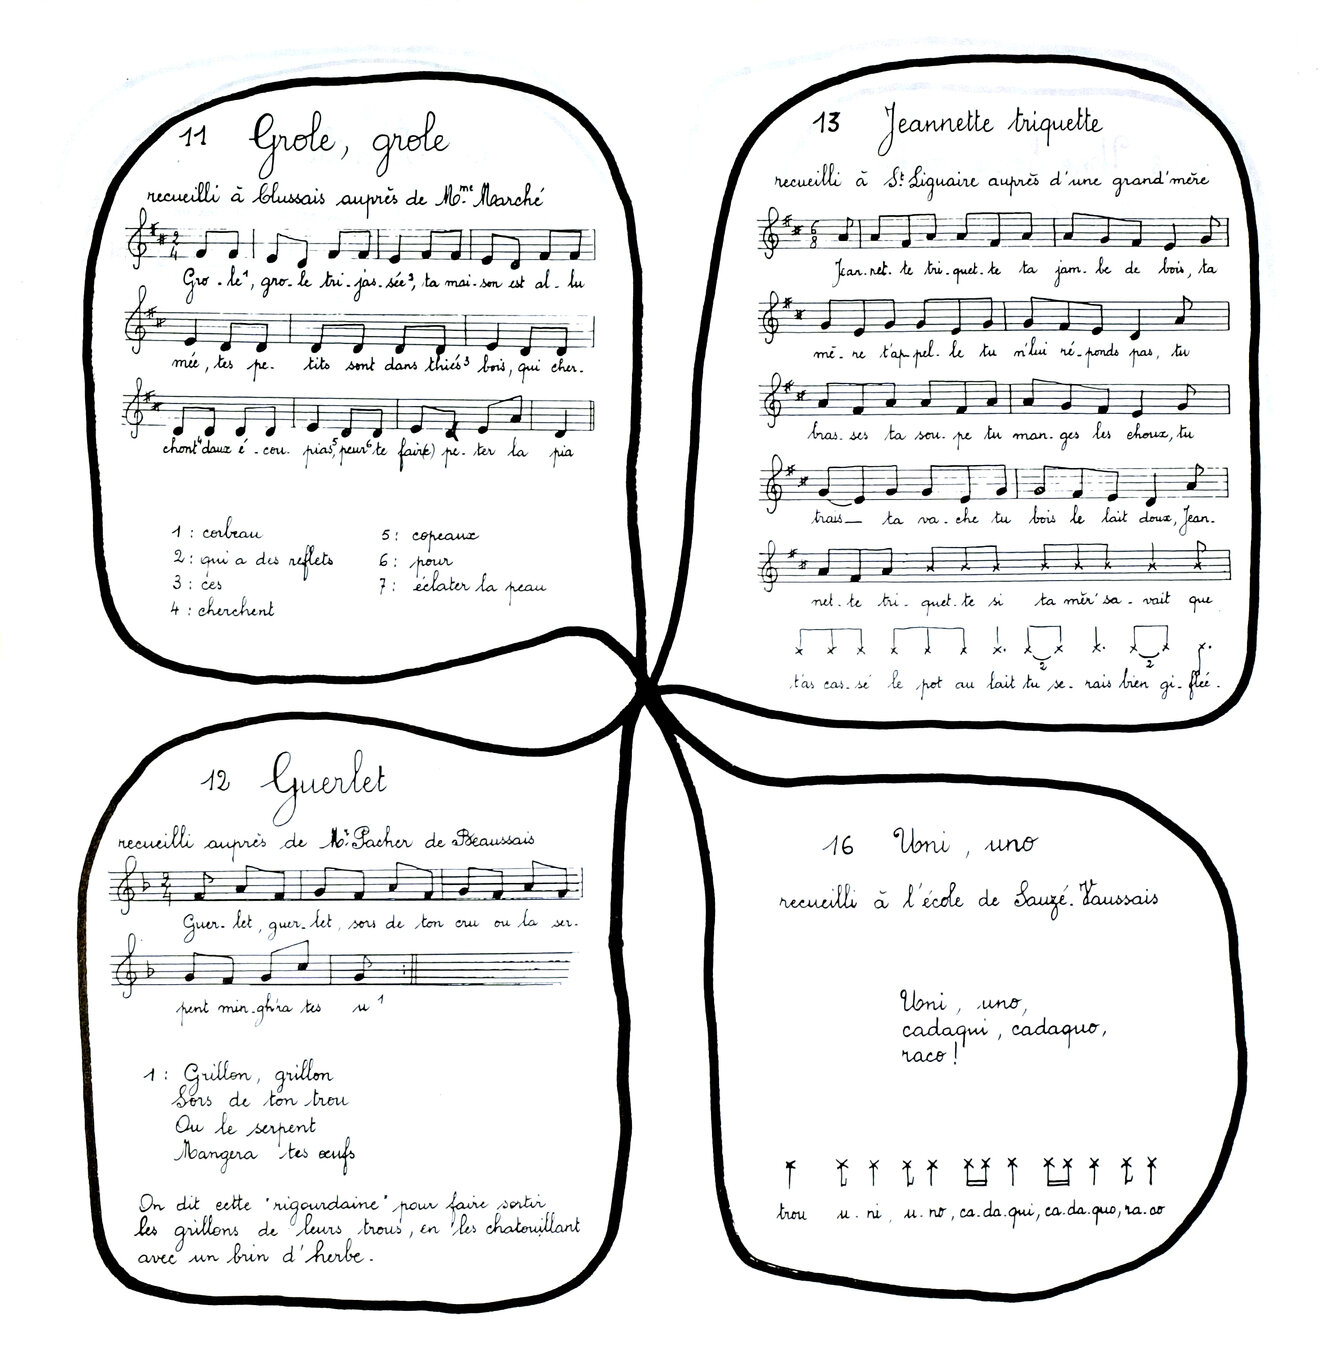 11 Grole, grole
recueilli à Clussais auprès de Mme Marché
Gro - le¹, gro - le tri - jas - sée², ta mai - son est al - lu
mée, tes pe - tits sont dans thiés³ bois, qui cher -
chont⁴ daux é - cou - pias⁵, peur⁶ te fair(e) pe - ter la pia
1 : corbeau
2 : qui a des reflets
3 : ces
4 : cherchent
5 : copeaux
6 : pour
7 : éclater la peau
13 Jeannette triquette
recueilli à St Liguaire auprès d'une grand'mère
Jean - net - te tri - quet - te ta jam - be de bois, ta
mè - re t'ap - pel - le tu n'lui ré - ponds pas, tu
bras - ses ta sou - pe tu man - ges les choux, tu
trais ta va - che tu bois le lait doux, Jean -
net - te tri - quet - te si ta mèr' sa - vait que
t'as cas - sé le pot au lait tu se - rais bien gi - flée.
2 2
12 Guerlet
recueilli auprès de Mr Pacher de Beaussais
Guer - let, guer - let, sors de ton cru ou la ser -
pent min - gh'ra tes u ¹
1 : Grillon, grillon
Sors de ton trou
Ou le serpent
Mangera tes œufs
On dit cette "rigourdaine" pour faire sortir
les grillons de leurs trous, en les chatouillant
avec un brin d'herbe.
16 Uni, uno
recueilli à l'école de Sauzé-Vaussais
Uni, uno,
cadaqui, cadaquo,
raco !
trou u - ni, u - no, ca - da - qui, ca - da - quo, ra - co